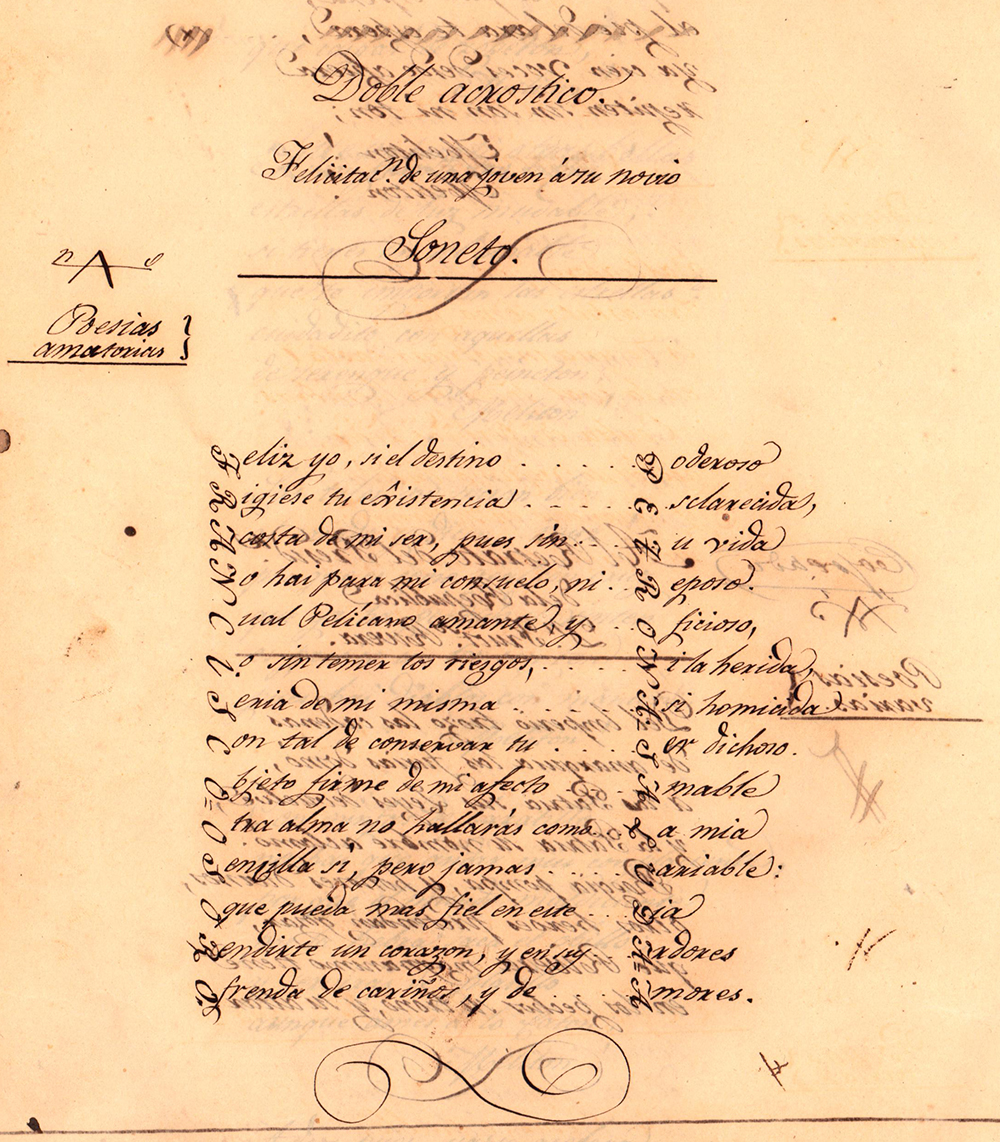 Doble acrostico.
Felicitac.n de una joven á su novio
Soneto.
Poesias
amatorias
Feliz yo, si el destino . . . . . Poderoso
Rigiese tu existencia . . . . . Esclarecida,
A costa de mi ser, pues sín . . . Tu vida
No hai para mi consuelo, ni . . Reposo.
Cual Pelícano amante, y . . Oficioso,
Yo sin temer los riezgos, . . . Ni la herida,
Seria de mi misma . . . . . A si homicida
Con tal de conservar tu . . . . Ser dichoso.
Objeto firme de mi afecto . . . Amable
Otra alma no hallarás como . . La mia
Sencilla si, pero jamas . . . . Variable:
O que pueda mas fiel en este . . Dia
Rendirte un corazon, y en sus Ardores
Ofrenda de cariños, y de . . . Amores.